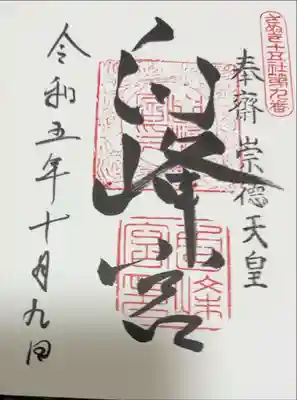 さぬき十五社第九番
奉齋 崇徳天皇
白峰宮
令和五年十月九日